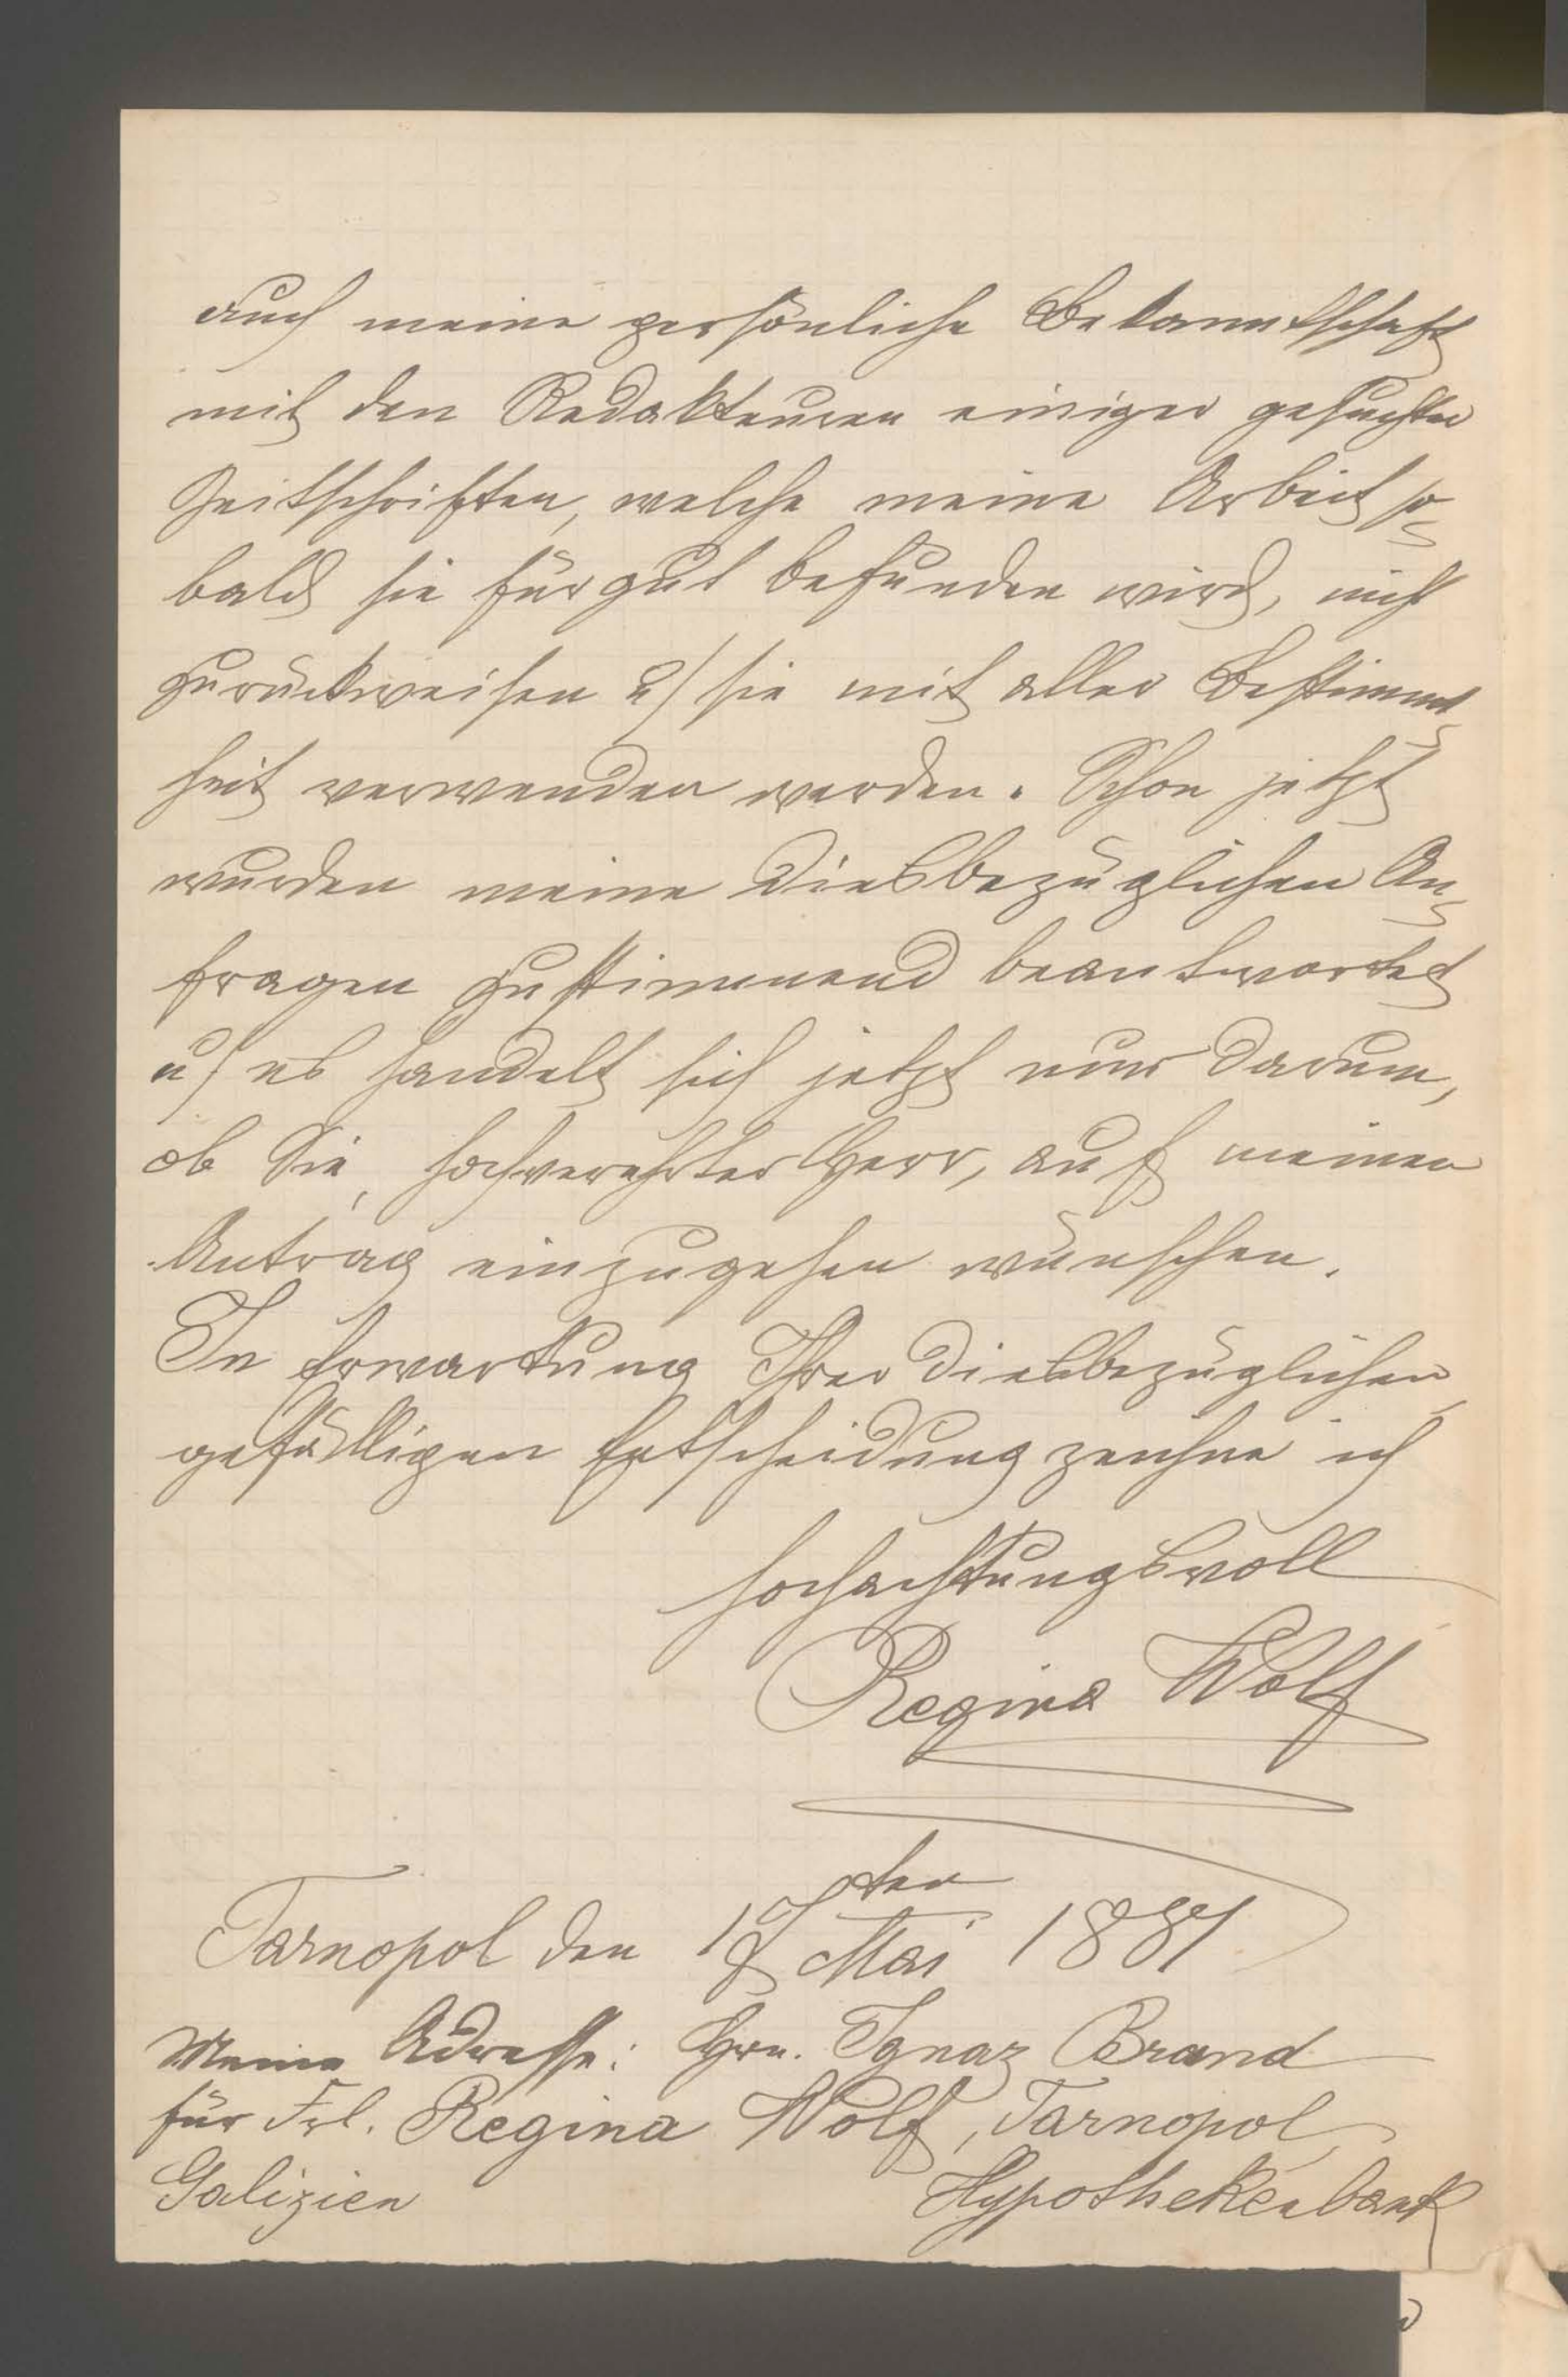 auch meine persönliche Bekanntschaft
mit den Redakteuren einiger gesuchter
Zeitschriften, welche meine Arbeit so-
bald sie für gut befunden wird, nicht
zurückweisen u) sie mit aller Bestimmt-
heit verwenden werden. Schon jetzt
wurden meine diesbezüglichen An-
fragen zustimmend beantwortet
u) es handelt sich jetzt nur darum,
ob Sie, hochverehrter Herr, auf meinen
Antrag einzugehen wünschen.
In Erwartung Ihrer diesbezüglichen,
gefälligen Entscheidung zeichne ich
hochachtungsvoll
Regina Wolf
Tarnopol den ten Mai
Meine Adresse: Hrn. Ignaz Brand
für Frl. Regina Wolf, Tarnopol,
Galizien Hypothekenbank